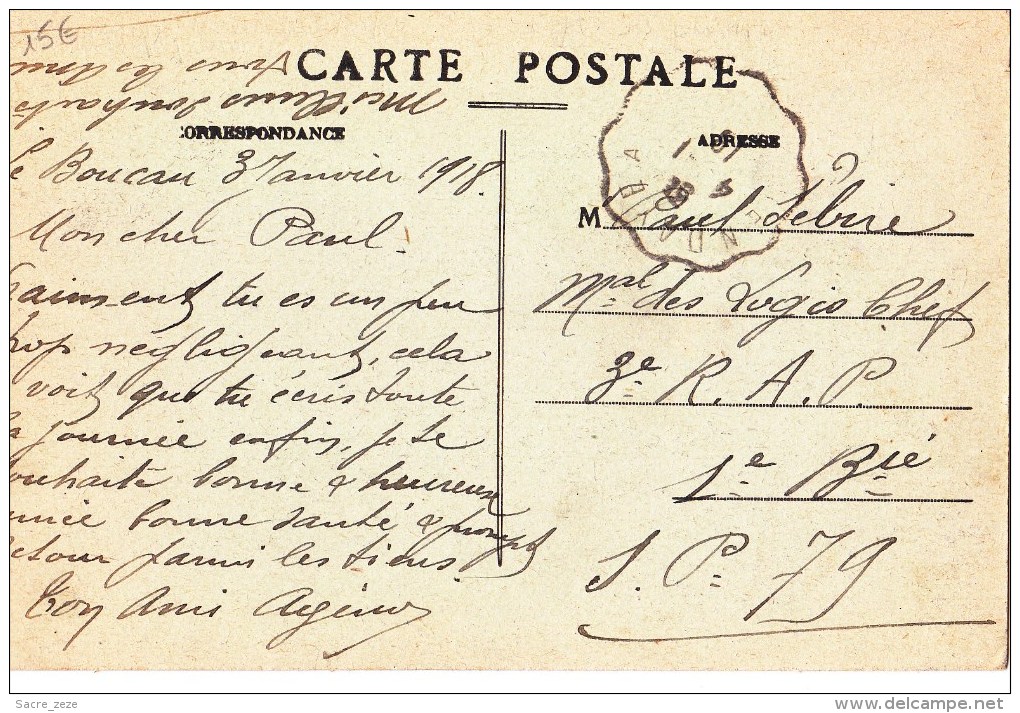 15€
CARTE POSTALE
CORRESPONDANCE
ADRESSE
Le Boucau 3 Janvier 1918.
Mon cher Paul.
Vraiment tu es un peu
trop négligeant, cela
voit que tu écris toute
la journée enfin, je te
souhaite bonne & heureuse
année bonne santé & prompt
retour parmi les tiens
Ton Ami
Meilleurs souhaits
tous les
M Paul
Mal des Logis Chef
3e R. A. P.
1e Bie
S. P. 79
Sacre_zeze
delcampe.net